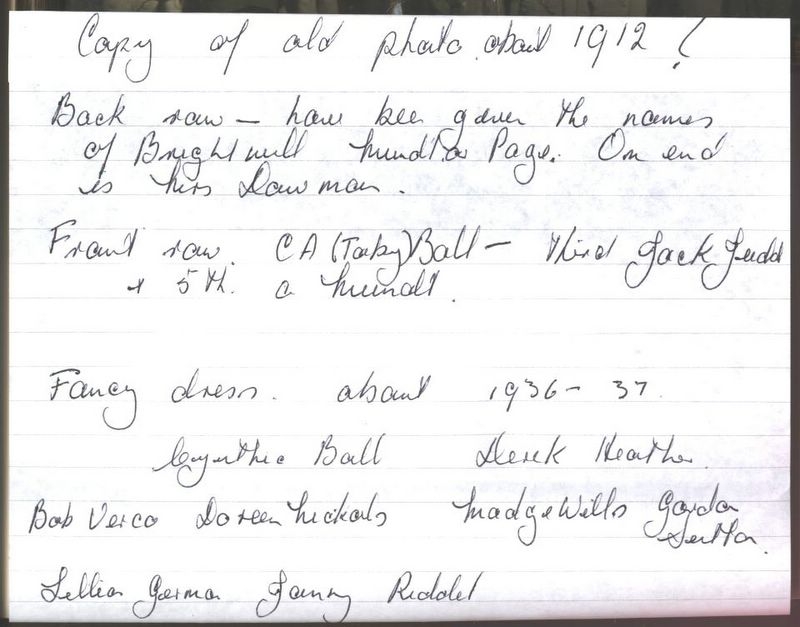 Copy of old photo about 1912 ?
Back row – have been given the names
of Brightwell Mundt or Page. On end
is Mrs Dowman.
Front row. C A (Toby) Ball – third Jack Judd
+ 5th. a Mundt.
Fancy dress. about 1936 – 37.
Cynthia Ball Derek Heather.
Bob Verco Doreen Nickols Madge Wills Gordon
Sutton.
Lillian German Fanny Riddel